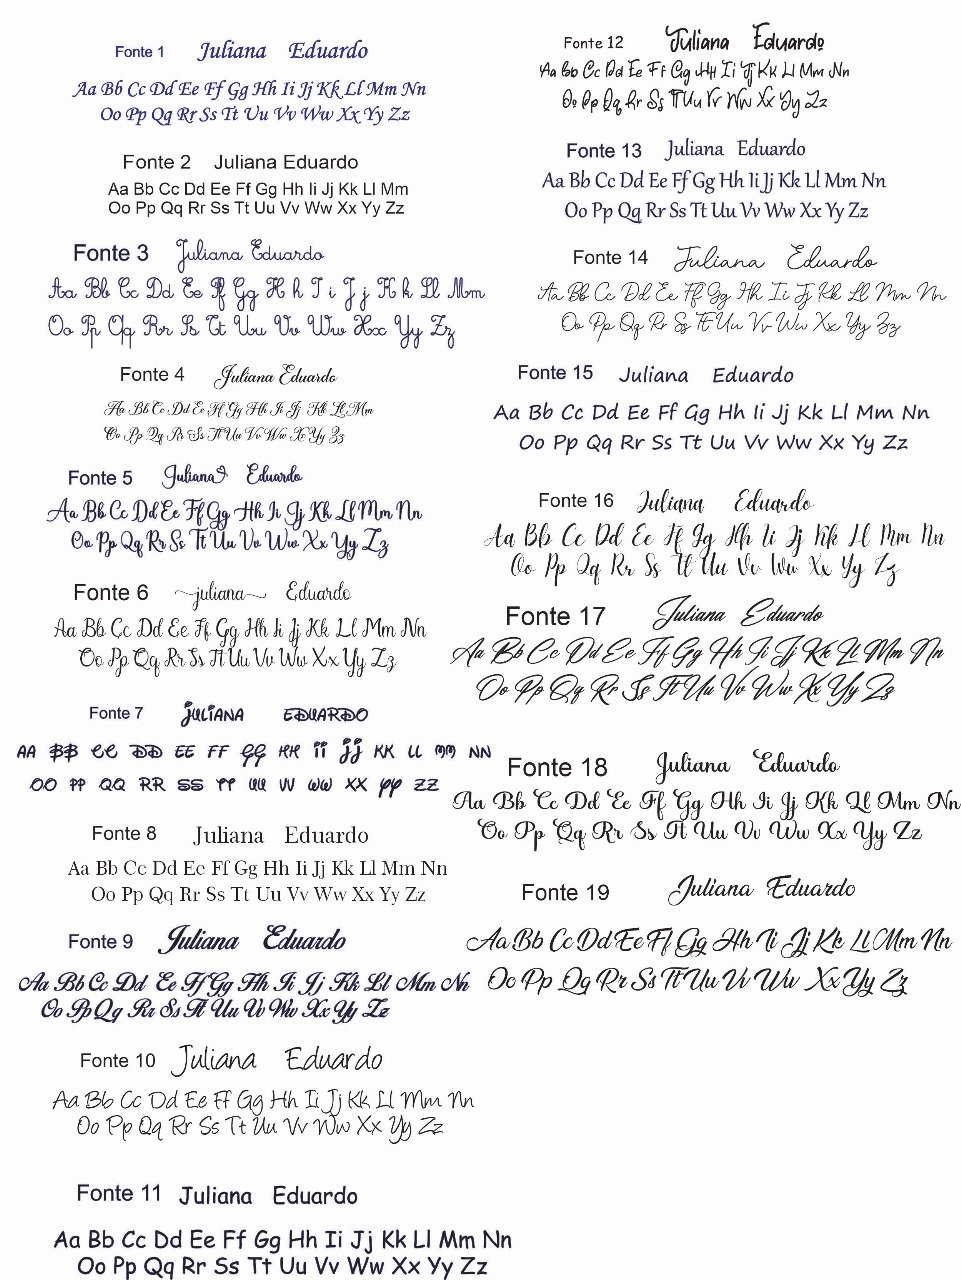 Fonte 1 Juliana Eduardo
Aa Bb Cc Dd Ee Ff Gg Hh Ii Jj Kk Ll Mm Nn
Oo Pp Qq Rr Ss Tt Uu Vv Ww Xx Yy Zz
Fonte 2 Juliana Eduardo
Aa Bb Cc Dd Ee Ff Gg Hh Ii Jj Kk Ll Mm
Oo Pp Qq Rr Ss Tt Uu Vv Ww Xx Yy Zz
Fonte 3 Juliana Eduardo
Aa Bb Cc Dd Ee Ff Gg H h I i J j K k Ll Mm
Oo Pp Qq Rr Ss Tt Uu Vv Ww Xx Yy Zz
Fonte 4 Juliana Eduardo
Aa Bb Cc Dd Ee Ff Gg Hh Ii Jj Kk Ll Mm
Oo Pp Qq Rr Ss Tt Uu Vv Ww Xx Yy Zz
Fonte 5 Juliana Eduardo
Aa Bb Cc Dd Ee Ff Gg Hh Ii Jj Kk Ll Mm Nn
Oo Pp Qq Rr Ss Tt Uu Vv Ww Xx Yy Zz
Fonte 6 juliana Eduardo
Aa Bb Cc Dd Ee Ff Gg Hh Ii Jj Kk Ll Mm Nn
Oo Pp Qq Rr Ss Tt Uu Vv Ww Xx Yy Zz
Fonte 7 JULIANA EDUARDO
AA BB CC DD EE FF GG HH II JJ KK LL MM NN
OO PP QQ RR SS TT UU VV WW XX YY ZZ
Fonte 8 Juliana Eduardo
Aa Bb Cc Dd Ee Ff Gg Hh Ii Jj Kk Ll Mm Nn
Oo Pp Qq Rr Ss Tt Uu Vv Ww Xx Yy Zz
Fonte 9 Juliana Eduardo
Aa Bb Cc Dd Ee Ff Gg Hh Ii Jj Kk Ll Mm Nn
Oo Pp Qq Rr Ss Tt Uu Vv Ww Xx Yy Zz
Fonte 10 Juliana Eduardo
Aa Bb Cc Dd Ee Ff Gg Hh Ii Jj Kk Ll Mm Nn
Oo Pp Qq Rr Ss Tt Uu Vv Ww Xx Yy Zz
Fonte 11 Juliana Eduardo
Aa Bb Cc Dd Ee Ff Gg Hh Ii Jj Kk Ll Mm Nn
Oo Pp Qq Rr Ss Tt Uu Vv Ww Xx Yy Zz
Fonte 12 Juliana Eduardo
Aa Bb Cc Dd Ee Ff Gg Hh Ii Jj Kk Ll Mm Nn
Oo Pp Qq Rr Ss Tt Uu Vv Ww Xx Yy Zz
Fonte 13 Juliana Eduardo
Aa Bb Cc Dd Ee Ff Gg Hh Ii Jj Kk Ll Mm Nn
Oo Pp Qq Rr Ss Tt Uu Vv Ww Xx Yy Zz
Fonte 14 Juliana Eduardo
Aa Bb Cc Dd Ee Ff Gg Hh Ii Jj Kk Ll Mm Nn
Oo Pp Qq Rr Ss Tt Uu Vv Ww Xx Yy Zz
Fonte 15 Juliana Eduardo
Aa Bb Cc Dd Ee Ff Gg Hh Ii Jj Kk Ll Mm Nn
Oo Pp Qq Rr Ss Tt Uu Vv Ww Xx Yy Zz
Fonte 16 Juliana Eduardo
Aa Bb Cc Dd Ee Ff Gg Hh Ii Jj Kk Ll Mm Nn
Oo Pp Qq Rr Ss Tt Uu Vv Ww Xx Yy Zz
Fonte 17 Juliana Eduardo
Aa Bb Cc Dd Ee Ff Gg Hh Ii Jj Kk Ll Mm Nn
Oo Pp Qq Rr Ss Tt Uu Vv Ww Xx Yy Zz
Fonte 18 Juliana Eduardo
Aa Bb Cc Dd Ee Ff Gg Hh Ii Jj Kk Ll Mm Nn
Oo Pp Qq Rr Ss Tt Uu Vv Ww Xx Yy Zz
Fonte 19 Juliana Eduardo
Aa Bb Cc Dd Ee Ff Gg Hh Ii Jj Kk Ll Mm Nn
Oo Pp Qq Rr Ss Tt Uu Vv Ww Xx Yy Zz